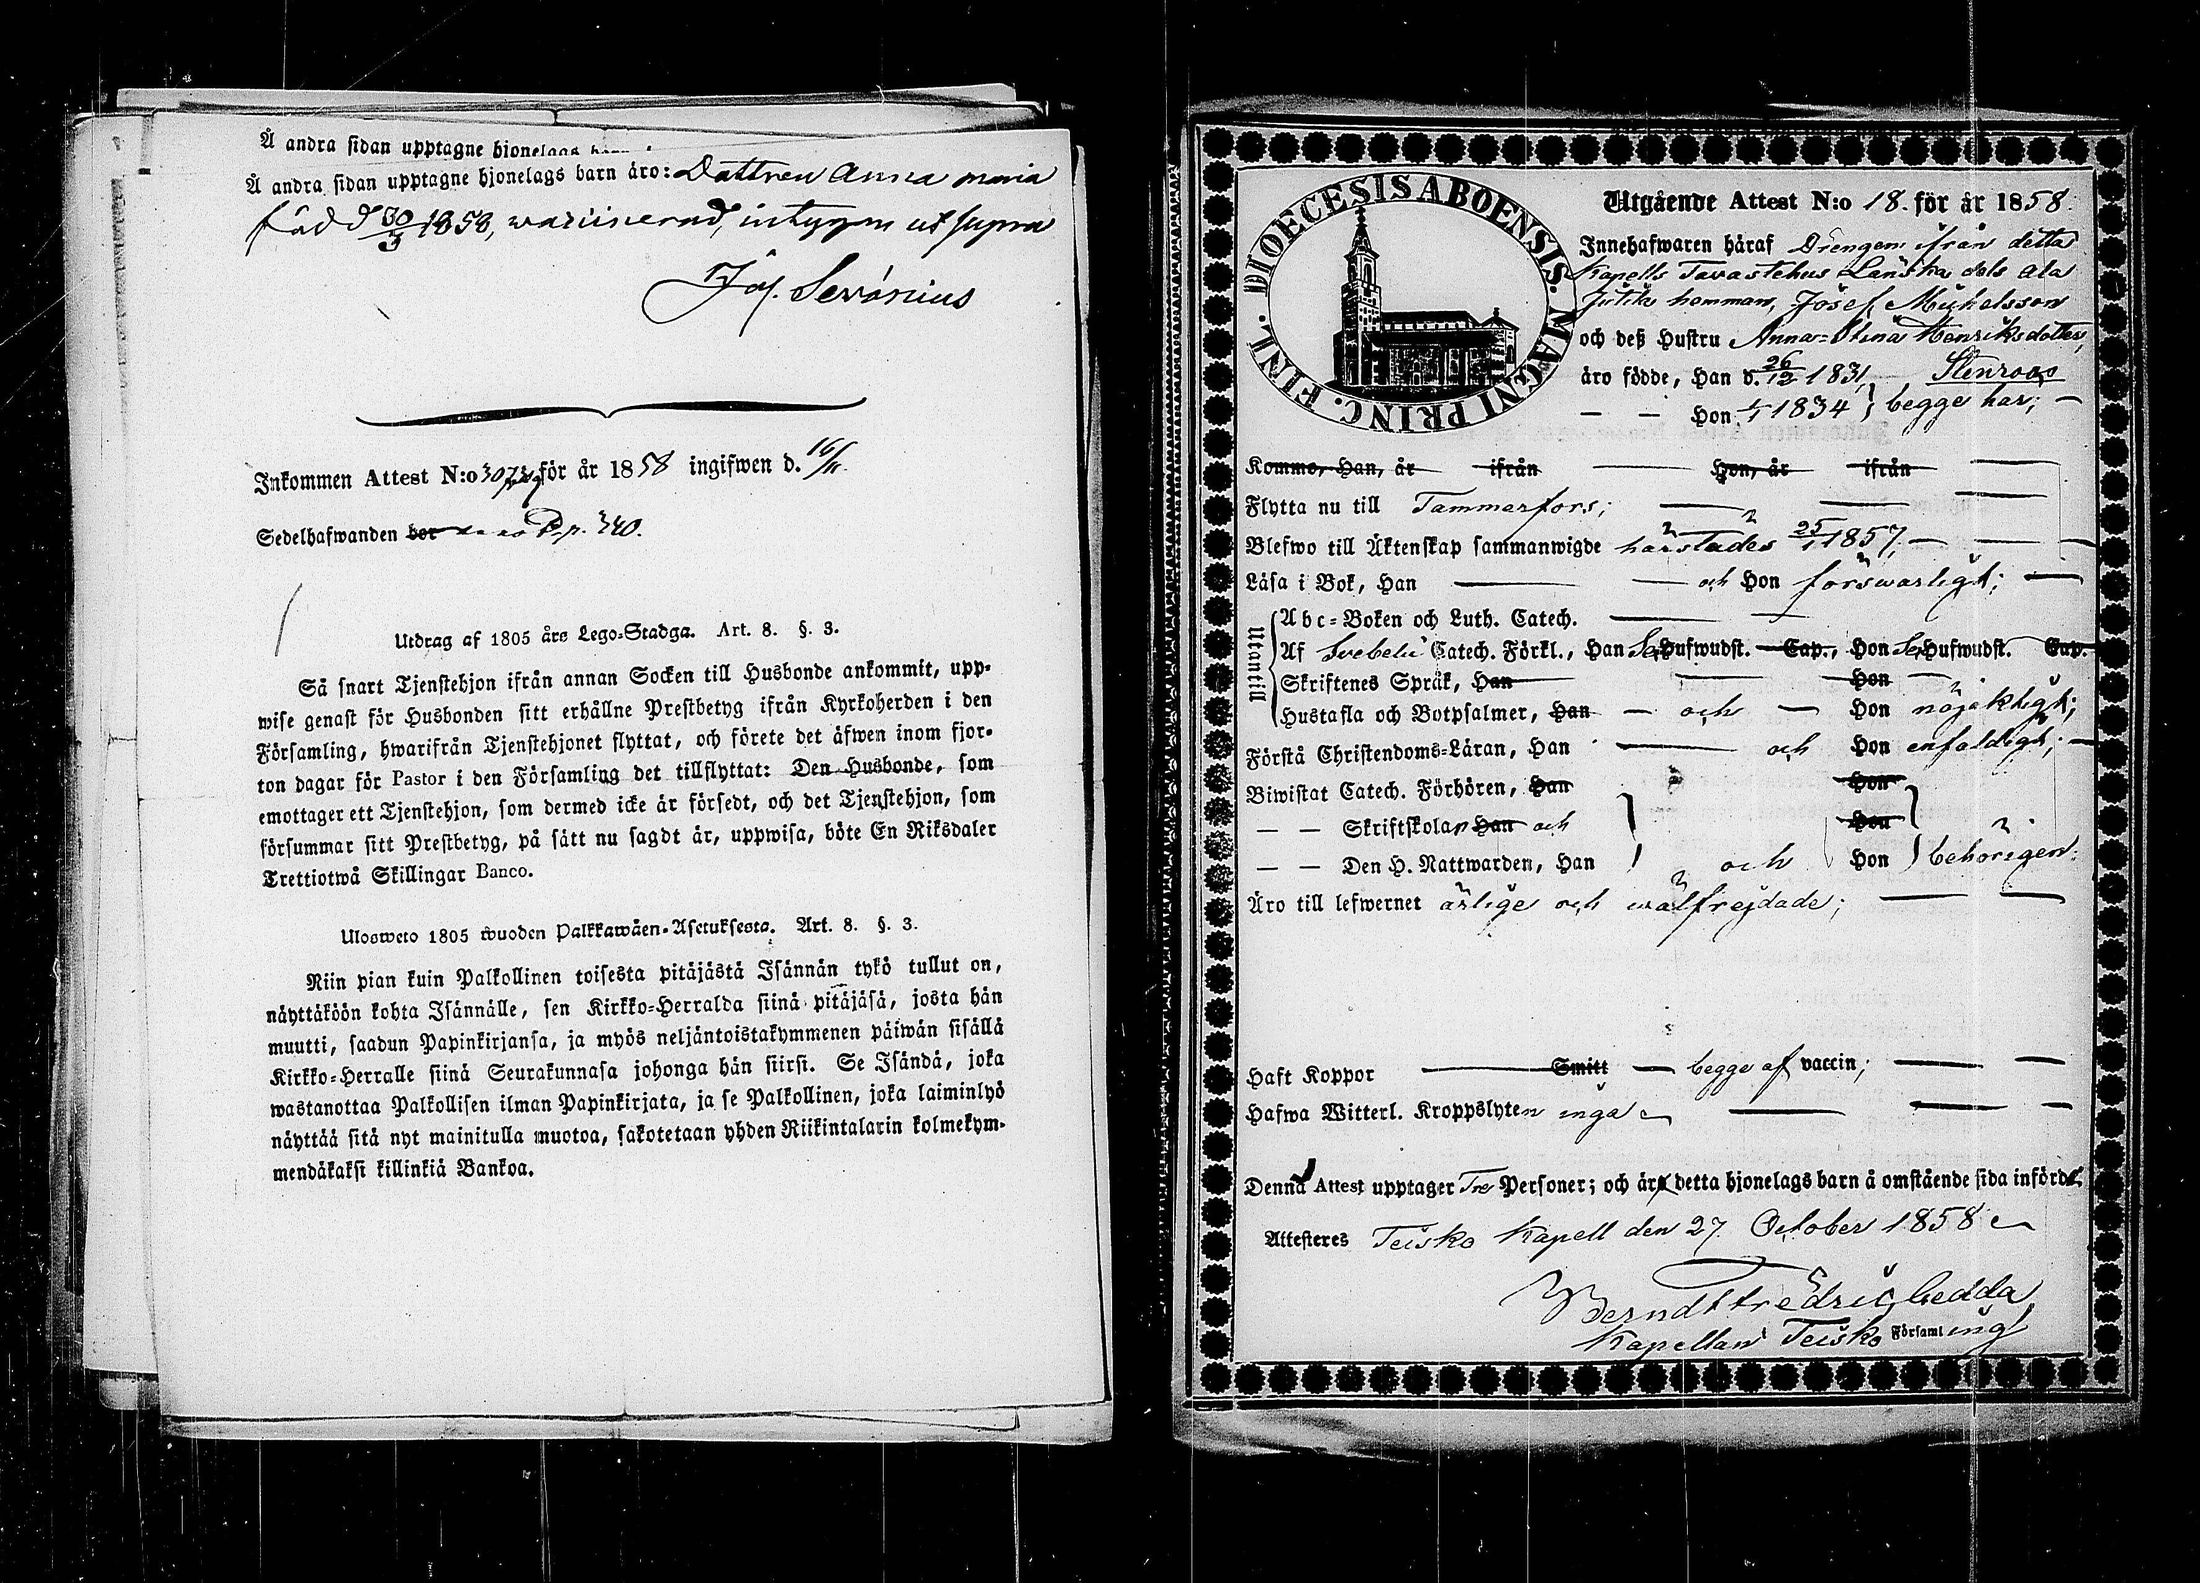 Å andra sidan upptagne hjonelags barn
Å andra sidan upptagne hjonelags barn äro: Dottren Anna Maria
född 30/3 1858, waccinerad, intygar ut supra
Joh. Serönius
Inkommen Attest N:o 307 för år 1858 ingifwen d. 16/11.
Sedelhafwanden bor p. 340.
Utdrag af 1805 års Lego-Stadga. Art. 8. §. 3.
Så snart Tjenstehjon ifrån annan Socken till Husbonde ankommit, upp-
wise genast för Husbonden sitt erhållne Prestbetyg ifrån Kyrkoherden i den
Församling, hwarifrån Tjenstehjonet flyttat, och förete det äfwen inom fjor-
ton dagar för Pastor i den Församling det tillflyttat: Den Husbonde, som
emottager ett Tjenstehjon, som dermed icke är försedt, och det Tjenstehjon, som
försummar sitt Prestbetyg, på sätt nu sagdt är, uppwisa, böte En Riksdaler
Trettiotwå Skillingar Banco.
Ulosweto 1805 wuoden Palkkawäen-Asetuksesta. Art. 8. §. 3.
Niin pian kuin Palkollinen toisesta pitäjästä Isännän tykö tullut on,
näyttäköön kohta Isännälle, sen Kirkko-Herralda siinä pitäjäsä, josta hän
muutti, saadun Papinkirjansa, ja myös neljäntoistakymmenen päiwän sisällä
Kirkko-Herralle siinä Seurakunnasa johonga hän siirsi. Se Isändä, joka
wastanottaa Palkollisen ilman Papinkirjata, ja se Palkollinen, joka laiminlyö
näyttää sitä nyt mainitulla muotoa, sakotetaan yhden Riikintalarin kolmekym-
mendäkaksi killinkiä Bankoa.
DIOECESIS ABOENSIS. MAGNI PRINC. FINL.
Utgående Attest N:o 18. för år 1858.
Innehafwaren häraf Drengen ifrån detta
Kapells Tavastehus Länska dels Ala
hemman, Josef Michelsson
och deß Hustru Anna-Stina Henriksdotter,
äro födde, Han d. 26/12 1831, Stenroos
— — Hon 1/1 1834 } begge här; —
Kommo, Han, år ifrån Hon, år ifrån
Flytta nu till Tammerfors;
Blefwo till Äktenskap sammanwigde härstädes 25/1 1857,
Läsa i Bok, Han och Hon förswarligt;
Utantill
Abc-Boken och Luth. Catech.
Af Svebelii Catech. Förkl., Han Sex Hufwudst. Cap., Hon Sex Hufwudst. Cap.
Skriftenes Språk, Han Hon
Hustafla och Botpsalmer, Han — och — Hon nöjaktigt;
Förstå Christendoms-Läran, Han och Hon enfaldigt;
Biwistat Catech. Förhören, Han Hon
— — Skriftskolan Han och Hon
— — Den H. Nattwarden, Han och Hon behörigen:
Äro till lefwernet ärlige och wälfrejdade;
Haft Koppor Smitt — begge af vaccin;
Hafwa Witterl. Kroppslyten inga
Denna Attest upptager Tre Personer; och är detta hjonelags barn å omstående sida infördt.
Attesteres Teisko Kapell den 27 October 1858
Berndt Fredric Gedda
Kapellan i Teisko Församling